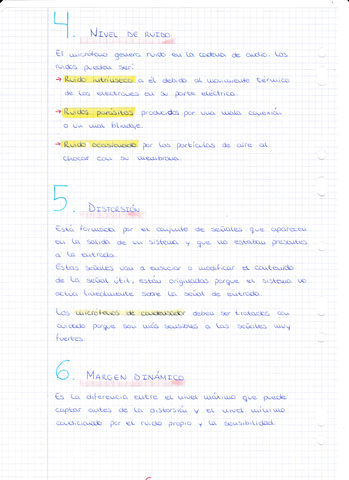 4. NIVEL DE RUIDO
El micrófono genera ruido en la cadena de audio. Los
ruidos pueden ser:
→ Ruido intrínseco o el debido al movimiento térmico
de los electrones en su parte eléctrica.
→ Ruidos parásitos producidos por una mala conexión
o un mal blindaje.
→ Ruido ocasionado por las partículas de aire al
chocar con su membrana.
5. DISTORSIÓN
Está formada por el conjunto de señales que aparecen
en la salida de un sistema y que no estaban presentes
a la entrada.
Estas señales van a ensuciar o modificar el contenido
de la señal útil, están originadas porque el sistema no
actúa linealmente sobre la señal de entrada.
Los micrófonos de condensador deben ser tratados con
cuidado porque son más sensibles a las señales muy
fuertes.
6. MARGEN DINÁMICO
Es la diferencia entre el nivel máximo que puede
captar antes de la distorsión y el nivel mínimo
condicionado por el ruido propio y la sensibilidad.